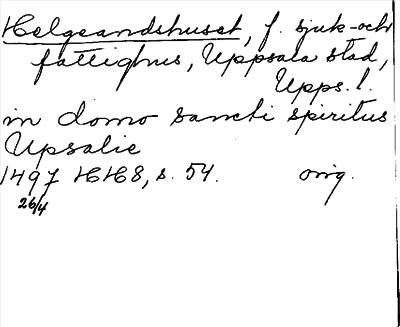 Helgeandshuset, f. sjuk- och
fattighus, Uppsala stad,
Upps. l.
in domo sancti spiritus
Upsalie
1497 HH8, s. 54. orig.
26/4